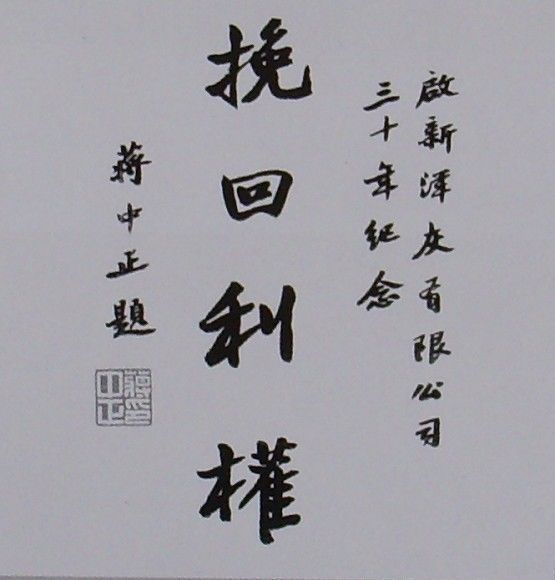 啟新洋灰有限公司
三十年紀念
挽回利權
蔣中正題